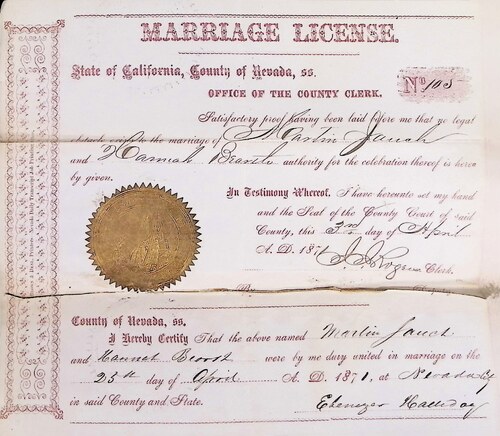 MARRIAGE LICENSE.
State of California, County of Nevada, ss.
No 103
OFFICE OF THE COUNTY CLERK.
Satisfactory proof having been laid before me that no legal
obstacle exists to the marriage of Martin Jauch
and Hannah authority for the celebration thereof is here-
by given.
In Testimony Whereof, I have hereunto set my hand
and the Seal of the County Court of said
County, this 3rd day of April
A. D. 1871
Clerk.
County of Nevada, ss.
I Hereby Certify That the above named Martin Jauch
and Hannah were by me duly united in marriage on the
23th day of April A. D. 1871, at Nevada City
in said County and State.
Ebenezer Halliday